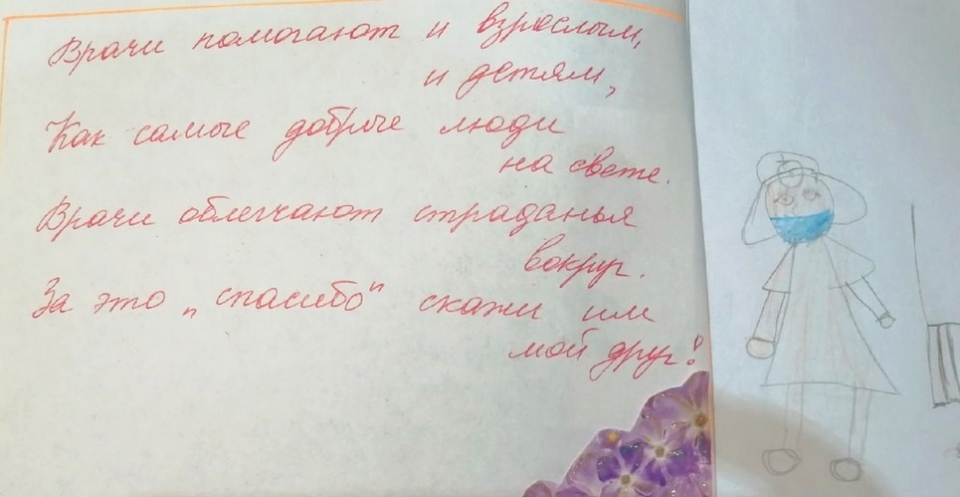 Врачи помогают и взрослым,
и детям,
Как самые добрые люди
на свете.
Врачи облегчают страданья
вокруг.
За это „спасибо" скажи им
мой друг!